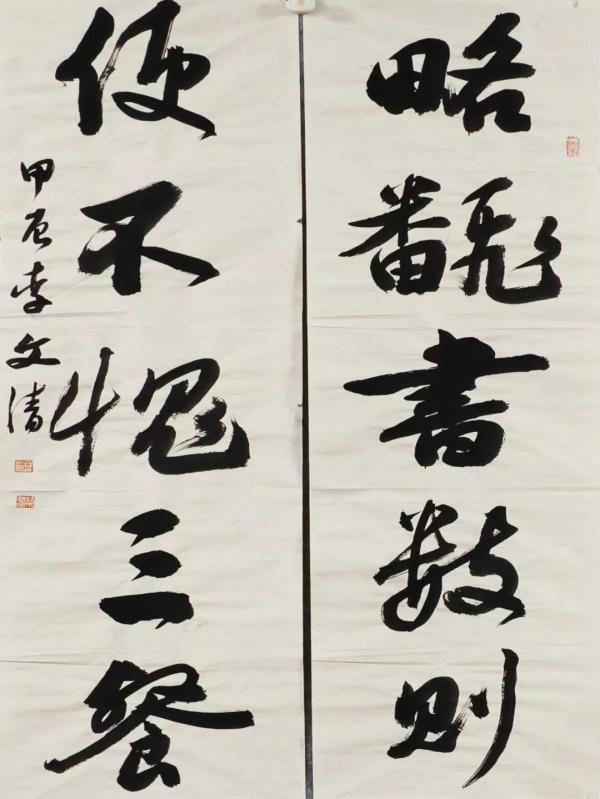 略飜書數則
便不愧三餐
甲辰李文清